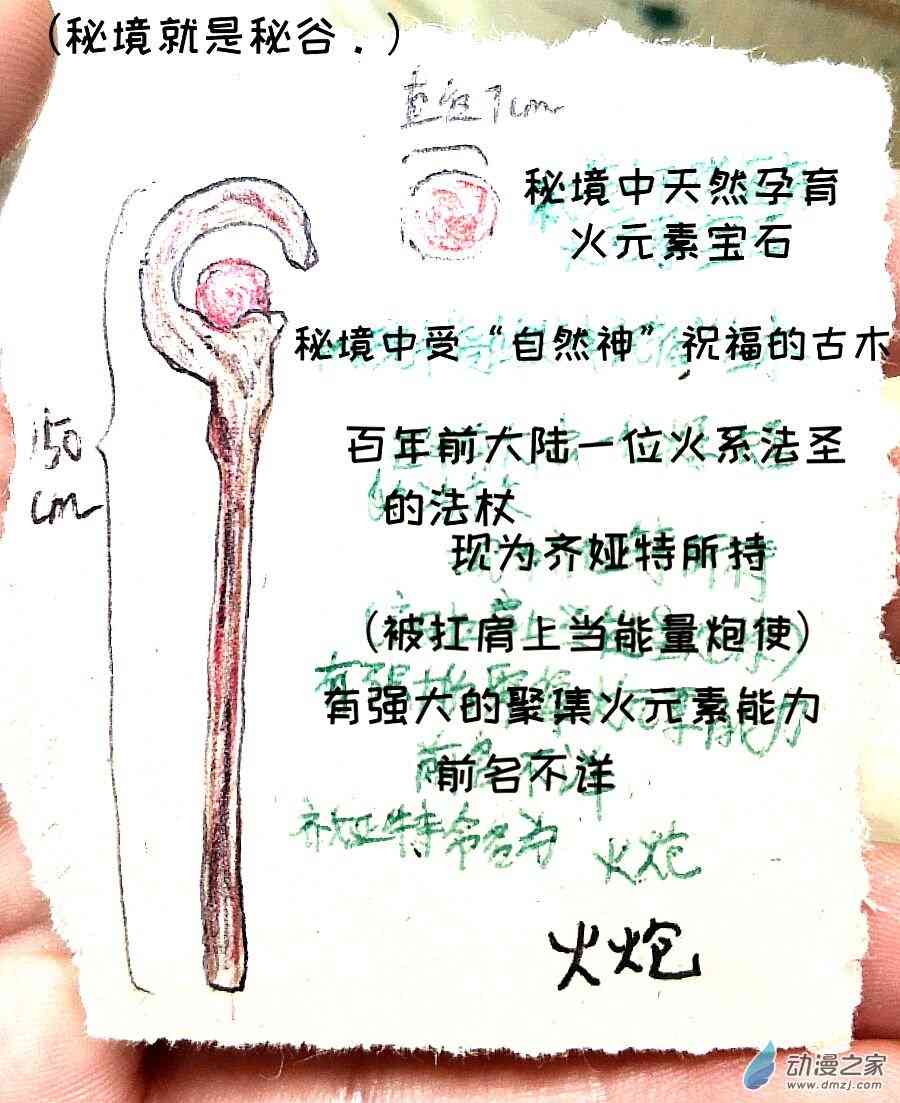 (秘境就是秘谷.)
直径7cm
秘境中天然孕育
火元素宝石
秘境中受“自然神”祝福的古木
150
cm
百年前大陆一位火系法圣
的法杖
现为齐娅特所持
(被扛肩上当能量炮使)
有强大的聚集火元素能力
前名不详
齐娅特命名为 火炮
火炮
动漫之家
www.dmzj.com